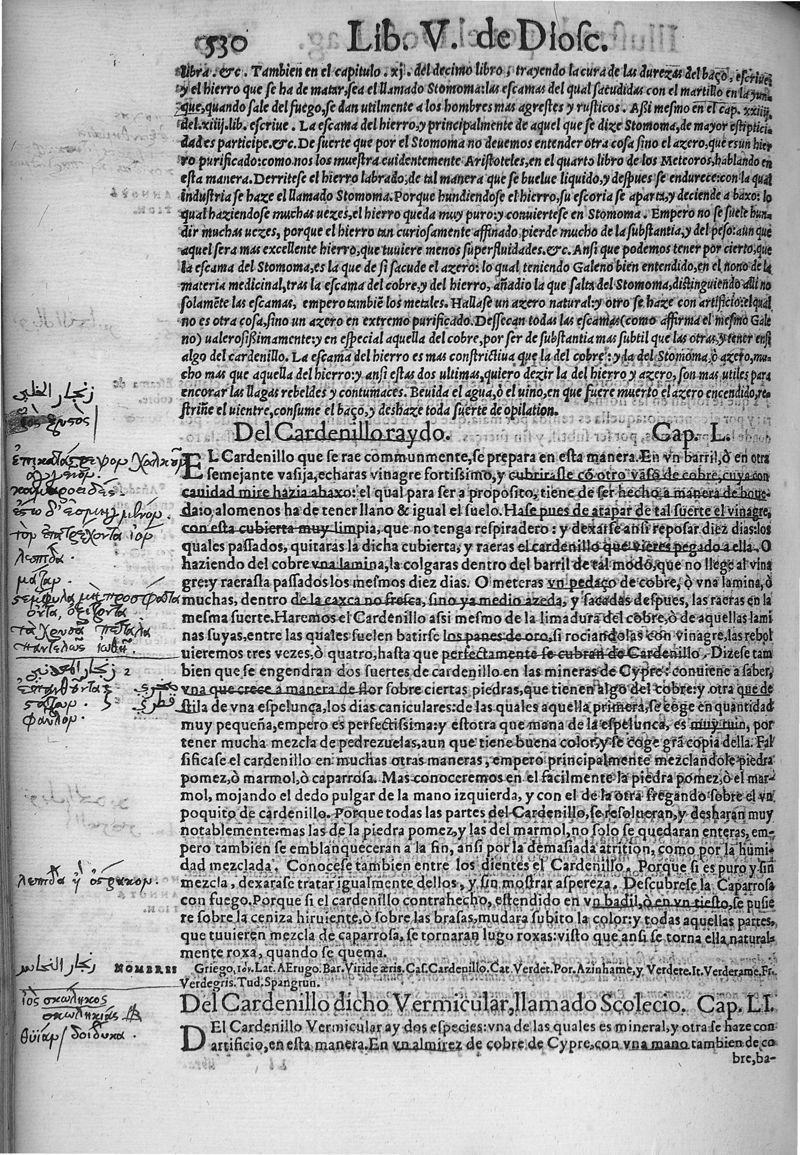 530 Lib. V. de Diosc.
libra. &c. Tambien en el capitulo. xj. del decimo libro, trayendo la cura de las durezas del baço, escriue,
y el hierro que se ha de matar, sea el llamado Stomoma: las escamas del qual sacudidas con el martillo en la yun-
que, quando sale del fuego, se dan utilmente a los hombres mas agrestes y rusticos. Assi mesmo en el cap. xxiiij.
del. xiiij. lib. escriue. La escama del hierro, y principalmente de aquel que se dize Stomoma, de mayor estiptici-
dad es participe. &c. De suerte que por el Stomoma no deuemos entender otra cosa sino el azero, que es un hier
ro purificado: como nos los muestra euidentemente Aristoteles, en el quarto libro de los Meteoros, hablando en
esta manera. Derritese el hierro labrado, de tal manera que se buelue liquido, y despues se endurece: con la qual
industria se haze el llamado Stomoma. Porque hundiendose el hierro, su escoria se aparta, y deciende a baxo: lo
qual haziendose muchas uezes, el hierro queda muy puro: y conuiertese en Stomoma. Empero no se suele hun-
dir muchas uezes, porque el hierro tan curiosamente affinado pierde mucho de la substantia, y del peso: aun que
aquel sera mas excellente hierro, que tuuiere menos superfluidades. &c. Ansi que podemos tener por cierto, que
la escama del Stomoma, es la que de si sacude el azero: lo qual teniendo Galeno bien entendido, en el nono de la
materia medicinal, tras la escama del cobre, y del hierro, añadio la que salta del Stomoma, distinguiendo alli no
solamẽte las escamas, empero tambiẽ los metales. Hallase un azero natural: y otro se haze con artificio: el qual
no es otra cosa, sino un azero en extremo purificado. Dessecan todas las escamas (como affirma el mesmo Gale
no) ualerosissimamente: y en especial aquella del cobre, por ser de substantia mas subtil que las otras, y tener ensi
algo del cardenillo. La escama del hierro es mas constrictiua que la del cobre: y la del Stomoma, ò azero, mu-
cho mas que aquella del hierro: y ansi estas dos ultimas, quiero dezir la del hierro y azero, son mas utiles para
encorar las llagas rebeldes y contumaces. Beuida el agua, ò el uino, en que fuere muerto el azero encendido, re-
striñe el uientre, consume el baço, y deshaze toda suerte de opilation.
Del Cardenillo raydo. Cap. L.
EL Cardenillo que se rae communmente, se prepara en esta manera. En vn barril, ò en otra
semejante vasija, echaras vinagre fortissimo, y cubrirasle cõ otro vaso de cobre, cuya con
cauidad mire hazia abaxo: el qual para ser a proposito, tiene de ser hecho a manera de boue-
da: o alomenos ha de tener llano & igual el suelo. Hase pues de atapar de tal suerte el vinagre,
con esta cubierta muy limpia, que no tenga respiradero: y dexarse ansi reposar diez dias: los
quales passados, quitaràs la dicha cubierta, y raeras el cardenillo que vieres pegado a ella. O
haziendo del cobre vna lamina, la colgaras dentro del barril de tal modo, que no llegue al vina
gre: y raerasla passados los mesmos diez dias. O meteras vn pedaço de cobre, ò vna lamina, ò
muchas, dentro de la caxca no fresca, sino ya medio azeda, y sacadas despues, las raeras en la
mesma suerte. Haremos el Cardenillo assi mesmo de la limadura del cobre, ò de aquellas lami
nas suyas, entre las quales suelen batirse los panes de oro, si rociandolas con vinagre, las rebol
uieremos tres vezes, ò quatro, hasta que perfectamente se cubran de Cardenillo. Dizese tam
bien que se engendran dos suertes de cardenillo en las mineras de Cypre: conuiene a saber,
vna que crece a manera de flor sobre ciertas piedras, que tienen algo del cobre: y otra que de
stila de vna espelunça, los dias caniculares: de las quales aquella primera, se coge en quantidad
muy pequeña, empero es perfectissima: y estotra que mana de la espelunca, es muy ruin, por
tener mucha mezcla de pedrezuelas, aun que tiene buena color, y se coge grã copia della. Fal
sificase el cardenillo en muchas otras maneras, empero principalmente mezclandole piedra
pomez, ò marmol, ò caparrosa. Mas conoceremos en el facilmente la piedra pomez, ò el mar-
mol, mojando el dedo pulgar de la mano izquierda, y con el de la otra fregando sobre el vn
poquito de cardenillo. Porque todas las partes del Cardenillo, se resolueran, y desharan muy
notablemente: mas las de la piedra pomez, y las del marmol, no solo se quedaran enteras, em-
pero tambien se emblanqueceran a la fin, ansi por la demasiada atrition, como por la humi-
dad mezclada. Conocese tambien entre los dientes el Cardenillo. Porque si es puro y sin
mezcla, dexarase tratar igualmente dellos, y, sin mostrar aspereza. Descubrese la Caparrosa
con fuego. Porque si el cardenillo contrahecho, estendido en vn badil, ò en vn tiesto, se pusie
re sobre la ceniza hiruiente, ò sobre las brasas, mudara subito la color: y todas aquellas partes,
que tuuieren mezcla de caparrosa, se tornaran lugo roxas: visto que ansi se torna ella natural-
mente roxa, quando se quema.
NOMBRES Griego, ἰον. Lat. AErugo. Bar. Viride æris. Cas. Cardenillo. Cat. Verdet. Por. Azinhame, y Verdete. It. Verderame. Fr.
Verdegris. Tud. Spangrun.
Del Cardenillo dicho Vermicular, llamado Scolecio. Cap. LI.
DEl Cardenillo Vermicular ay dos especies: vna de las quales es mineral, y otra se haze con
artificio, en esta manera. En vn almirez de cobre de Cypre, con vna mano tambien de co
bre, ba-
زنجار
λεπίδα
زنجار المعدني
λεπίδα ἢ ὄστρακον.
زنجار النحاس
ἰὸς σκώληκος